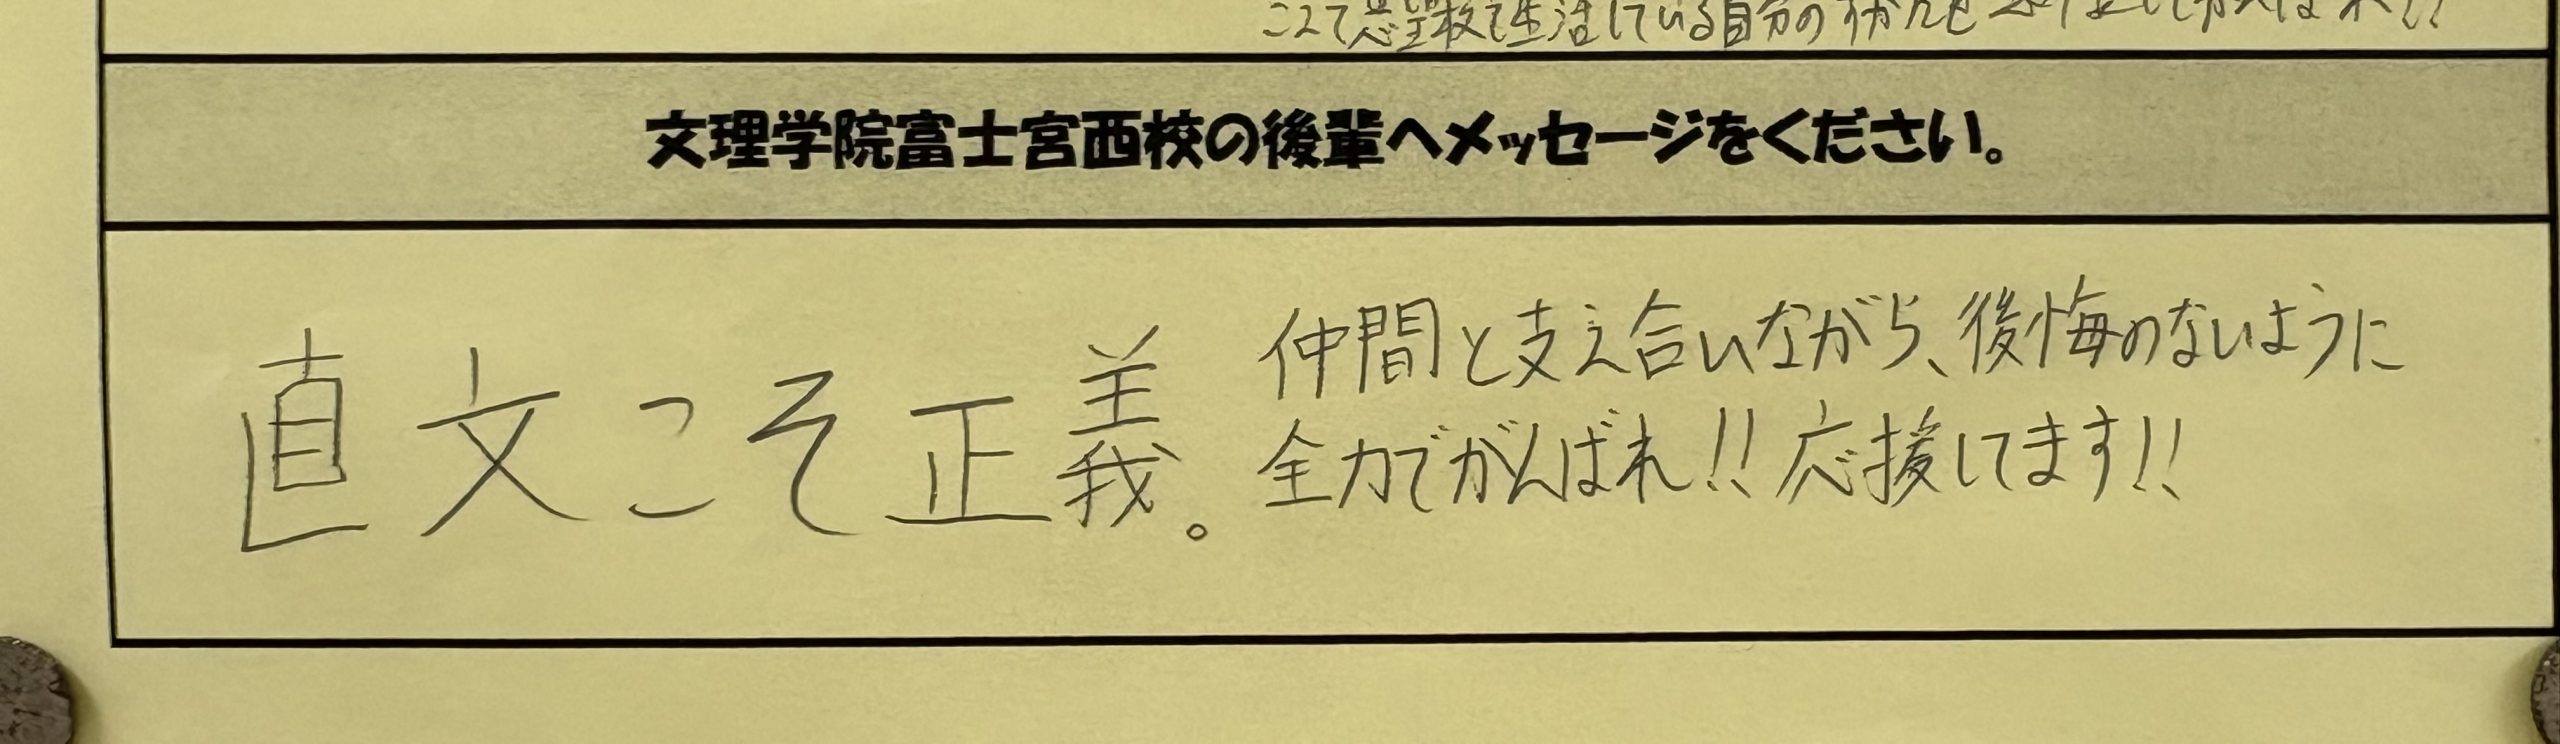 して志望校で生活している自分の
文理学院富士宮西校の後輩へメッセージをください。
直文こそ正義。
仲間と支え合いながら、後悔のないように
全力でがんばれ!!応援してます!!